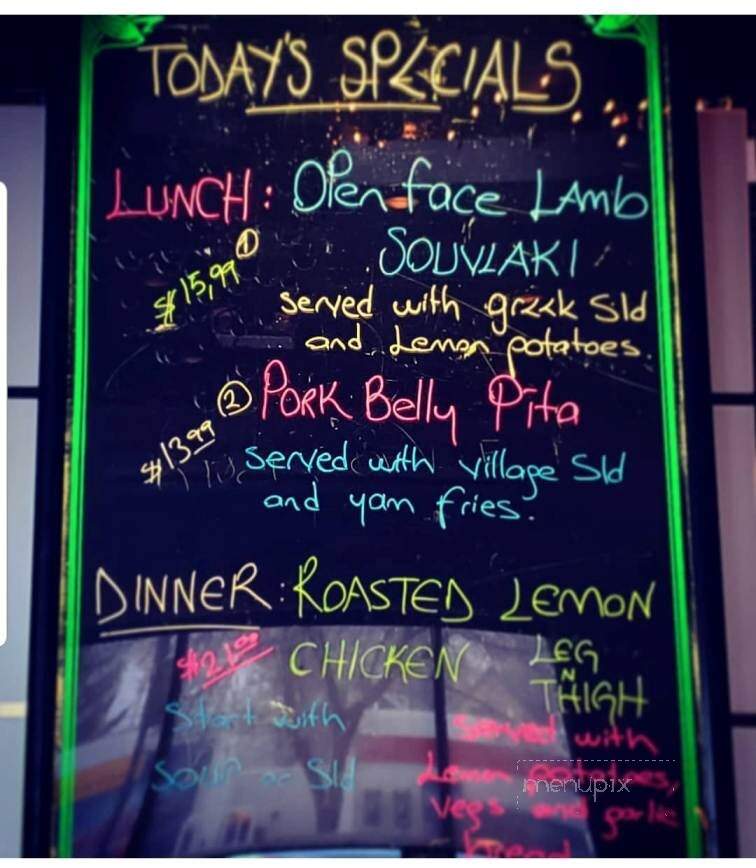 TODAY'S SPECIALS
LUNCH: OPen face LAmb
① SOUVLAKI
$15,99
served with greek Sld
and Lemon potatoes.
② PORK Belly Pita
$13.99
served with village Sld
and yam fries.
DINNER: ROASTED LEMON
CHICKEN LEG
N
THIGH
$21.00
Start with
Soup or Sld
Served with
Lemon
menupix
vegs and garlic
bread